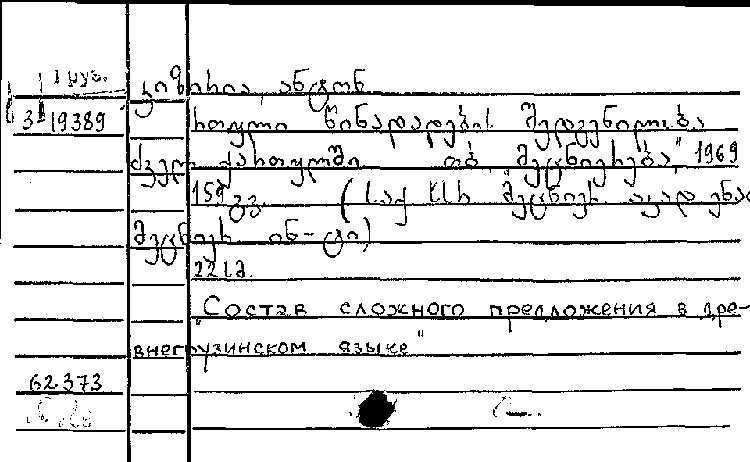 1 груз.
კიზირია, ანტონ
3 19389
რთული წინადადების შედგენილობა
ძველ ქართულში. თბ. "მეცნიერება", 1969
159 გვ. (საქ. სსრ მეცნიერ. აკად. ენათ
მეცნიერ. ინ-ტი)
"Состав сложного предложения в дре-
внегрузинском языке"
62.373